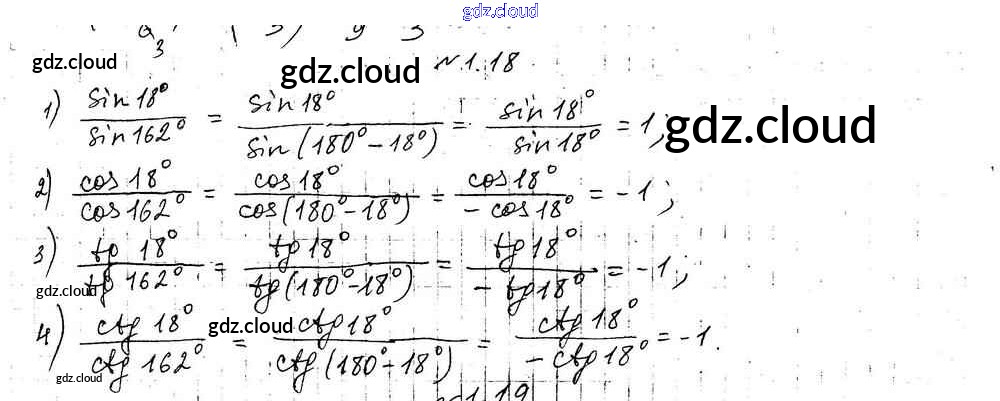 gdz.cloud
3
№1.18
gdz.cloud gdz.cloud
1) sin 18° / sin 162° = sin 18° / sin (180° - 18°) = sin 18° / sin 18° = 1; gdz.cloud
2) cos 18° / cos 162° = cos 18° / cos (180° - 18°) = cos 18° / - cos 18° = - 1;
3) tg 18° / tg 162° = tg 18° / tg (180° - 18°) = tg 18° / - tg 18° = - 1;
gdz.cloud
4) ctg 18° / ctg 162° = ctg 18° / ctg (180° - 18°) = ctg 18° / - ctg 18° = - 1.
gdz.cloud
gdz.cloud
1.19